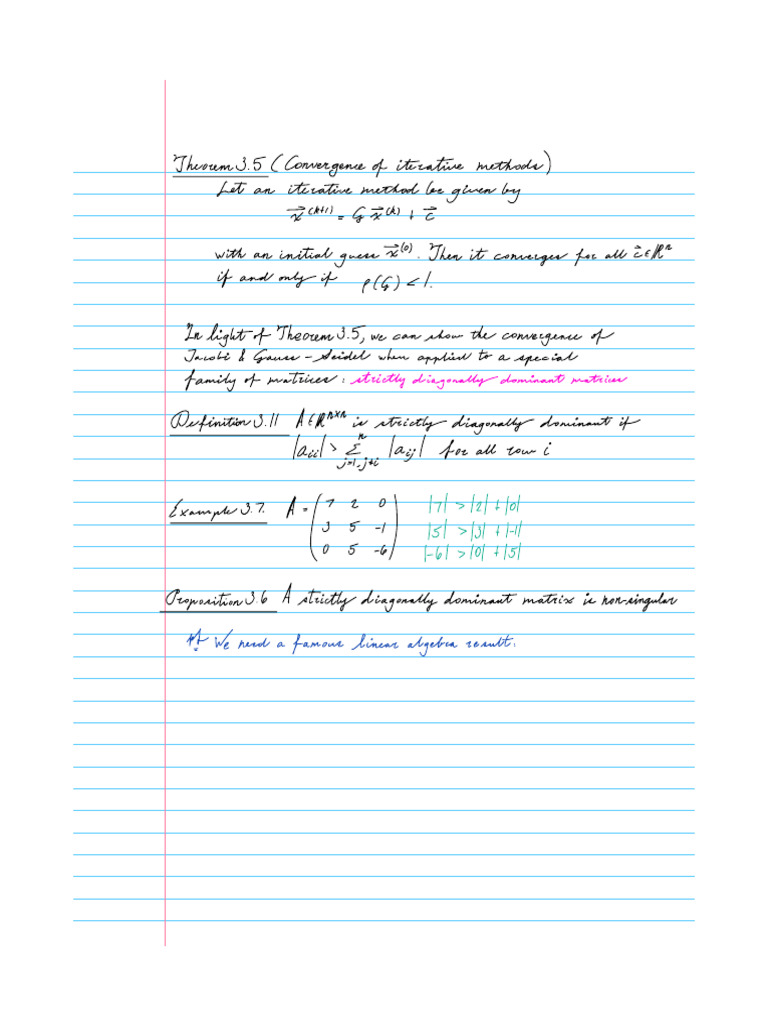 Theorem 3.5 (Convergence of iterative methods)
Let an iterative method be given by
x⃗^(k+1) = G x⃗^(k) + c⃗
with an initial guess x⃗^(0). Then it converges for all c⃗ ∈ ℝ^n
if and only if ρ(G) < 1.
In light of Theorem 3.5, we can show the convergence of
Jacobi & Gauss-Seidel when applied to a special
family of matrices: strictly diagonally dominant matrices
Definition 3.11 A ∈ ℝ^{n×n} is strictly diagonally dominant if
|a_ii| > Σ_{j=1, j≠i}^n |a_ij| for all row i
Example 3.7. A = ( 7 2 0 |7| > |2| + |0|
3 5 -1 |5| > |3| + |-1|
0 5 -6 ) |-6| > |0| + |5|
Proposition 3.6 A strictly diagonally dominant matrix is non-singular
pf We need a famous linear algebra result: